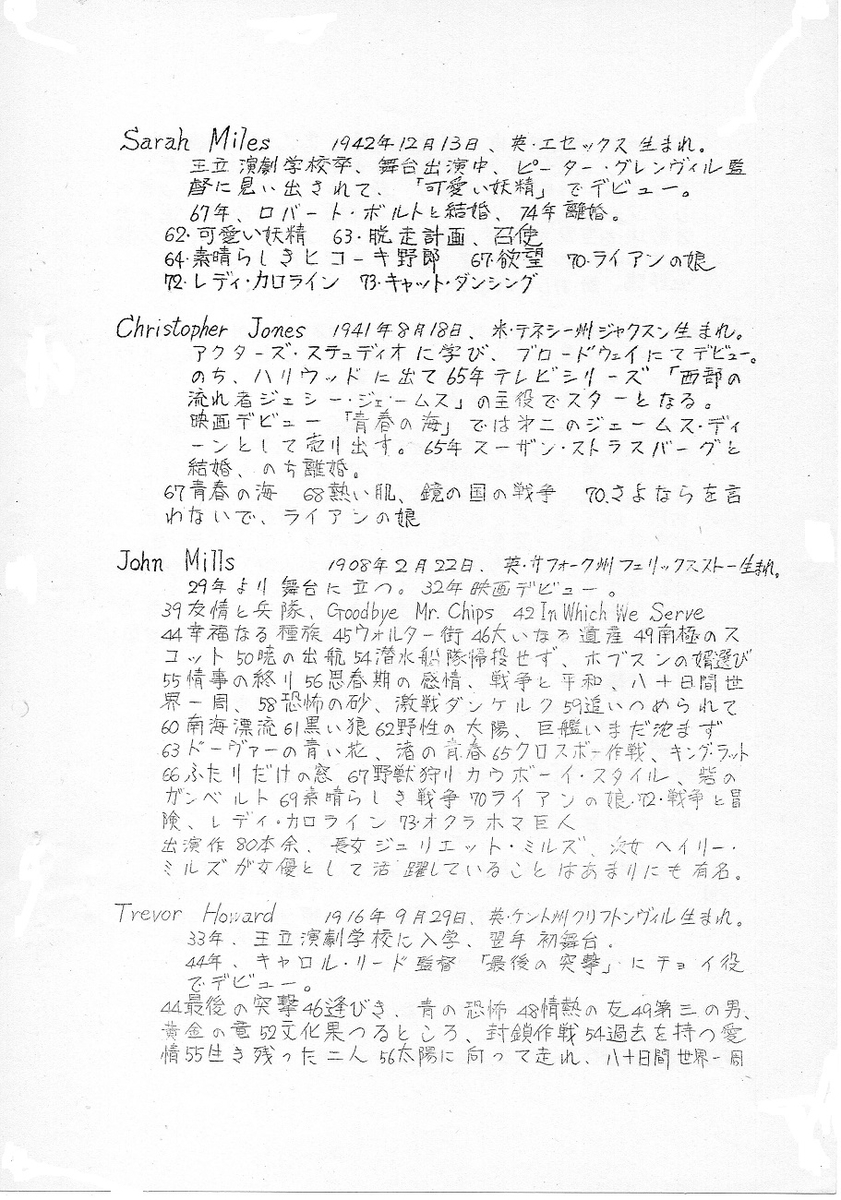 Sarah Miles 1942年12月13日、英・エセックス生まれ。
王立演劇学校卒、舞台出演中、ピーター・グレンヴィル監
督に見い出されて、「可愛い妖精」でデビュー。
67年、ロバート・ボルトと結婚、74年離婚。
62・可愛い妖精 63・脱走計画、召使
64・素晴らしきヒコーキ野郎 67・欲望 70・ライアンの娘
72・レディ・カロライン 73・キャット・ダンシング
Christopher Jones 1941年8月18日、米・テネシー州ジャクスン生まれ。
アクターズ・ステュディオに学び、ブロードウェイにてデビュー。
のち、ハリウッドに出て65年テレビシリーズ「西部の
流れ者ジェシー・ジェームス」の主役でスターとなる。
映画デビュー「青春の海」では第二のジェームス・ディ
ーンとして売り出す。65年スーザン・ストラスバーグと
結婚、のち離婚。
67青春の海 68熱い肌、鏡の国の戦争 70.さよならを言
わないで、ライアンの娘
John Mills 1908年2月22日、英・サフォーク州フェリックスストー生まれ。
29年より舞台に立つ。32年映画デビュー。
39友情と兵隊、Goodbye Mr. Chips 42 In Which We Serve
44幸福なる種族 45ウォルター街 46大いなる遺産 49南極のス
コット 50暁の出航 54潜水船隊帰投せず、ホブスンの婿選び
55情事の終り 56思春期の感情、戦争と平和、八十日間世
界一周、58恐怖の砂、激戦ダンケルク 59追いつめられて
60南海漂流 61黒い狼 62野性の太陽、巨艦いまだ沈まず
63ドーヴァーの青い花、渚の青春 65クロスボー作戦、キング・ラット
66ふたりだけの窓 67野獣狩りカウボーイ・スタイル、砦の
ガンベルト 69素晴らしき戦争 70ライアンの娘・72・戦争と冒
険、レディ・カロライン 73・オクラホマ巨人
出演作80本余、長女ジュリエット・ミルズ、次女ヘイリー・
ミルズが女優として活躍していることはあまりにも有名。
Trevor Howard 1916年9月29日、英・ケント州クリフトンヴィル生まれ。
33年、王立演劇学校に入学、翌年初舞台。
44年、キャロル・リード監督「最後の突撃」にチョイ役
でデビュー。
44最後の突撃46逢びき、青の恐怖 48情熱の友49第三の男、
黄金の竜 52文化果つるところ、封鎖作戦 54過去を持つ愛
情55生き残った二人 56太陽に向って走れ、八十日間世界一周